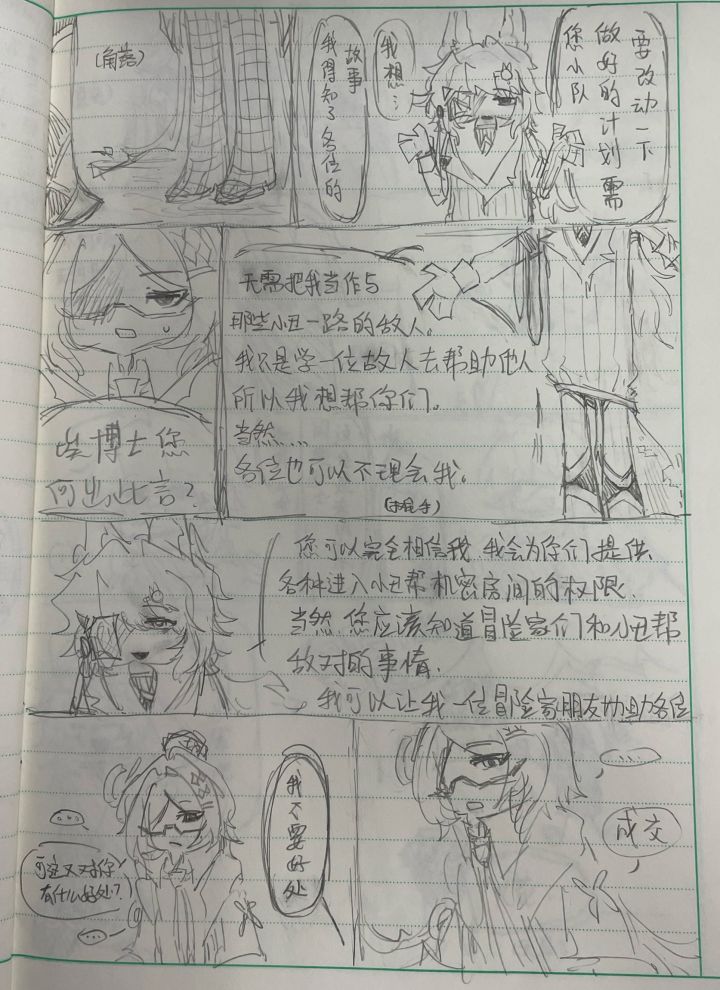 (角落)
我想…
我得知了各位的
故事
您小队
做好的计划需
要改动一下
博士您
何出此言？
无需把我当作与
那些小丑一路的敌人。
我只是学一位故人去帮助他人
所以我想帮你们。
当然....
各位也可以不理会我。
您可以完全相信我，我会为你们提供
各种进入小丑帮机密房间的权限，
当然，您应该知道冒险家们和小丑帮
敌对的事情，
我可以让我一位冒险家朋友协助各位
...
可这又对你
有什么好处？
...
我不要好处
....
成交